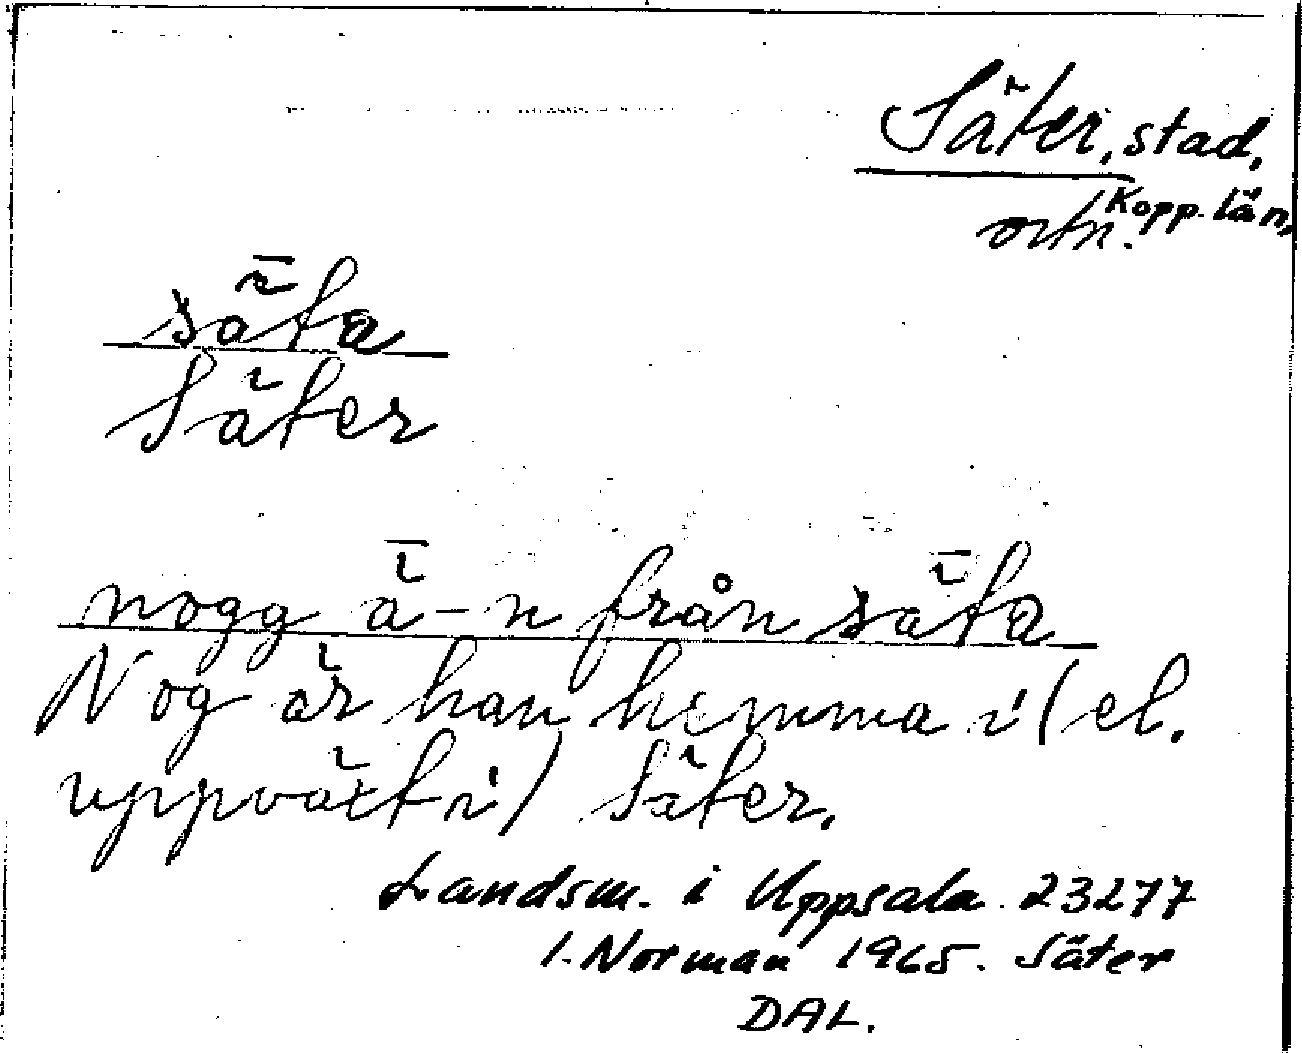 Säter, stad,
Kopp. län,
ortn.
sǟta
Säter
nogg ǟ-n från sǟta
Nog är han hemma i (el.
uppväxt i) Säter.
Landsm. i Uppsala 23277
I. Norman 1965. Säter
DAL.